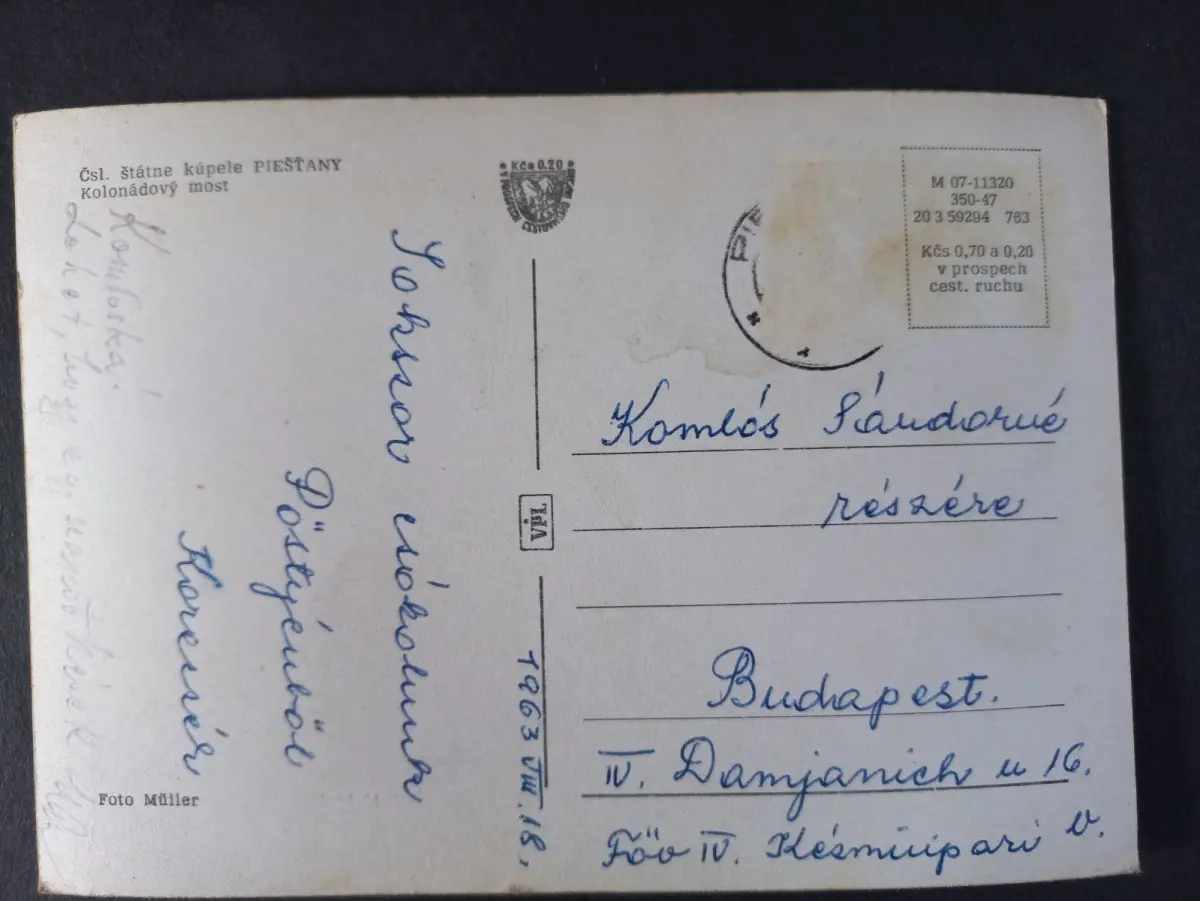 Čsl. štátne kúpele PIEŠŤANY
Kolonádový most
Kčs 0.20
M 07-11320
350-47
20 3 59294 763
Kčs 0,70 a 0,20
v prospech
cest. ruchu
PIE
Sokszor csókolunk
Pöstyénből
Korcsér
Komloska.
Lehet, hogy
1963 VIII. 18.
Komlós Sándorné
részére
Budapest.
IV. Damjanich u 16.
Főv IV. Késműipari V.
Foto Müller